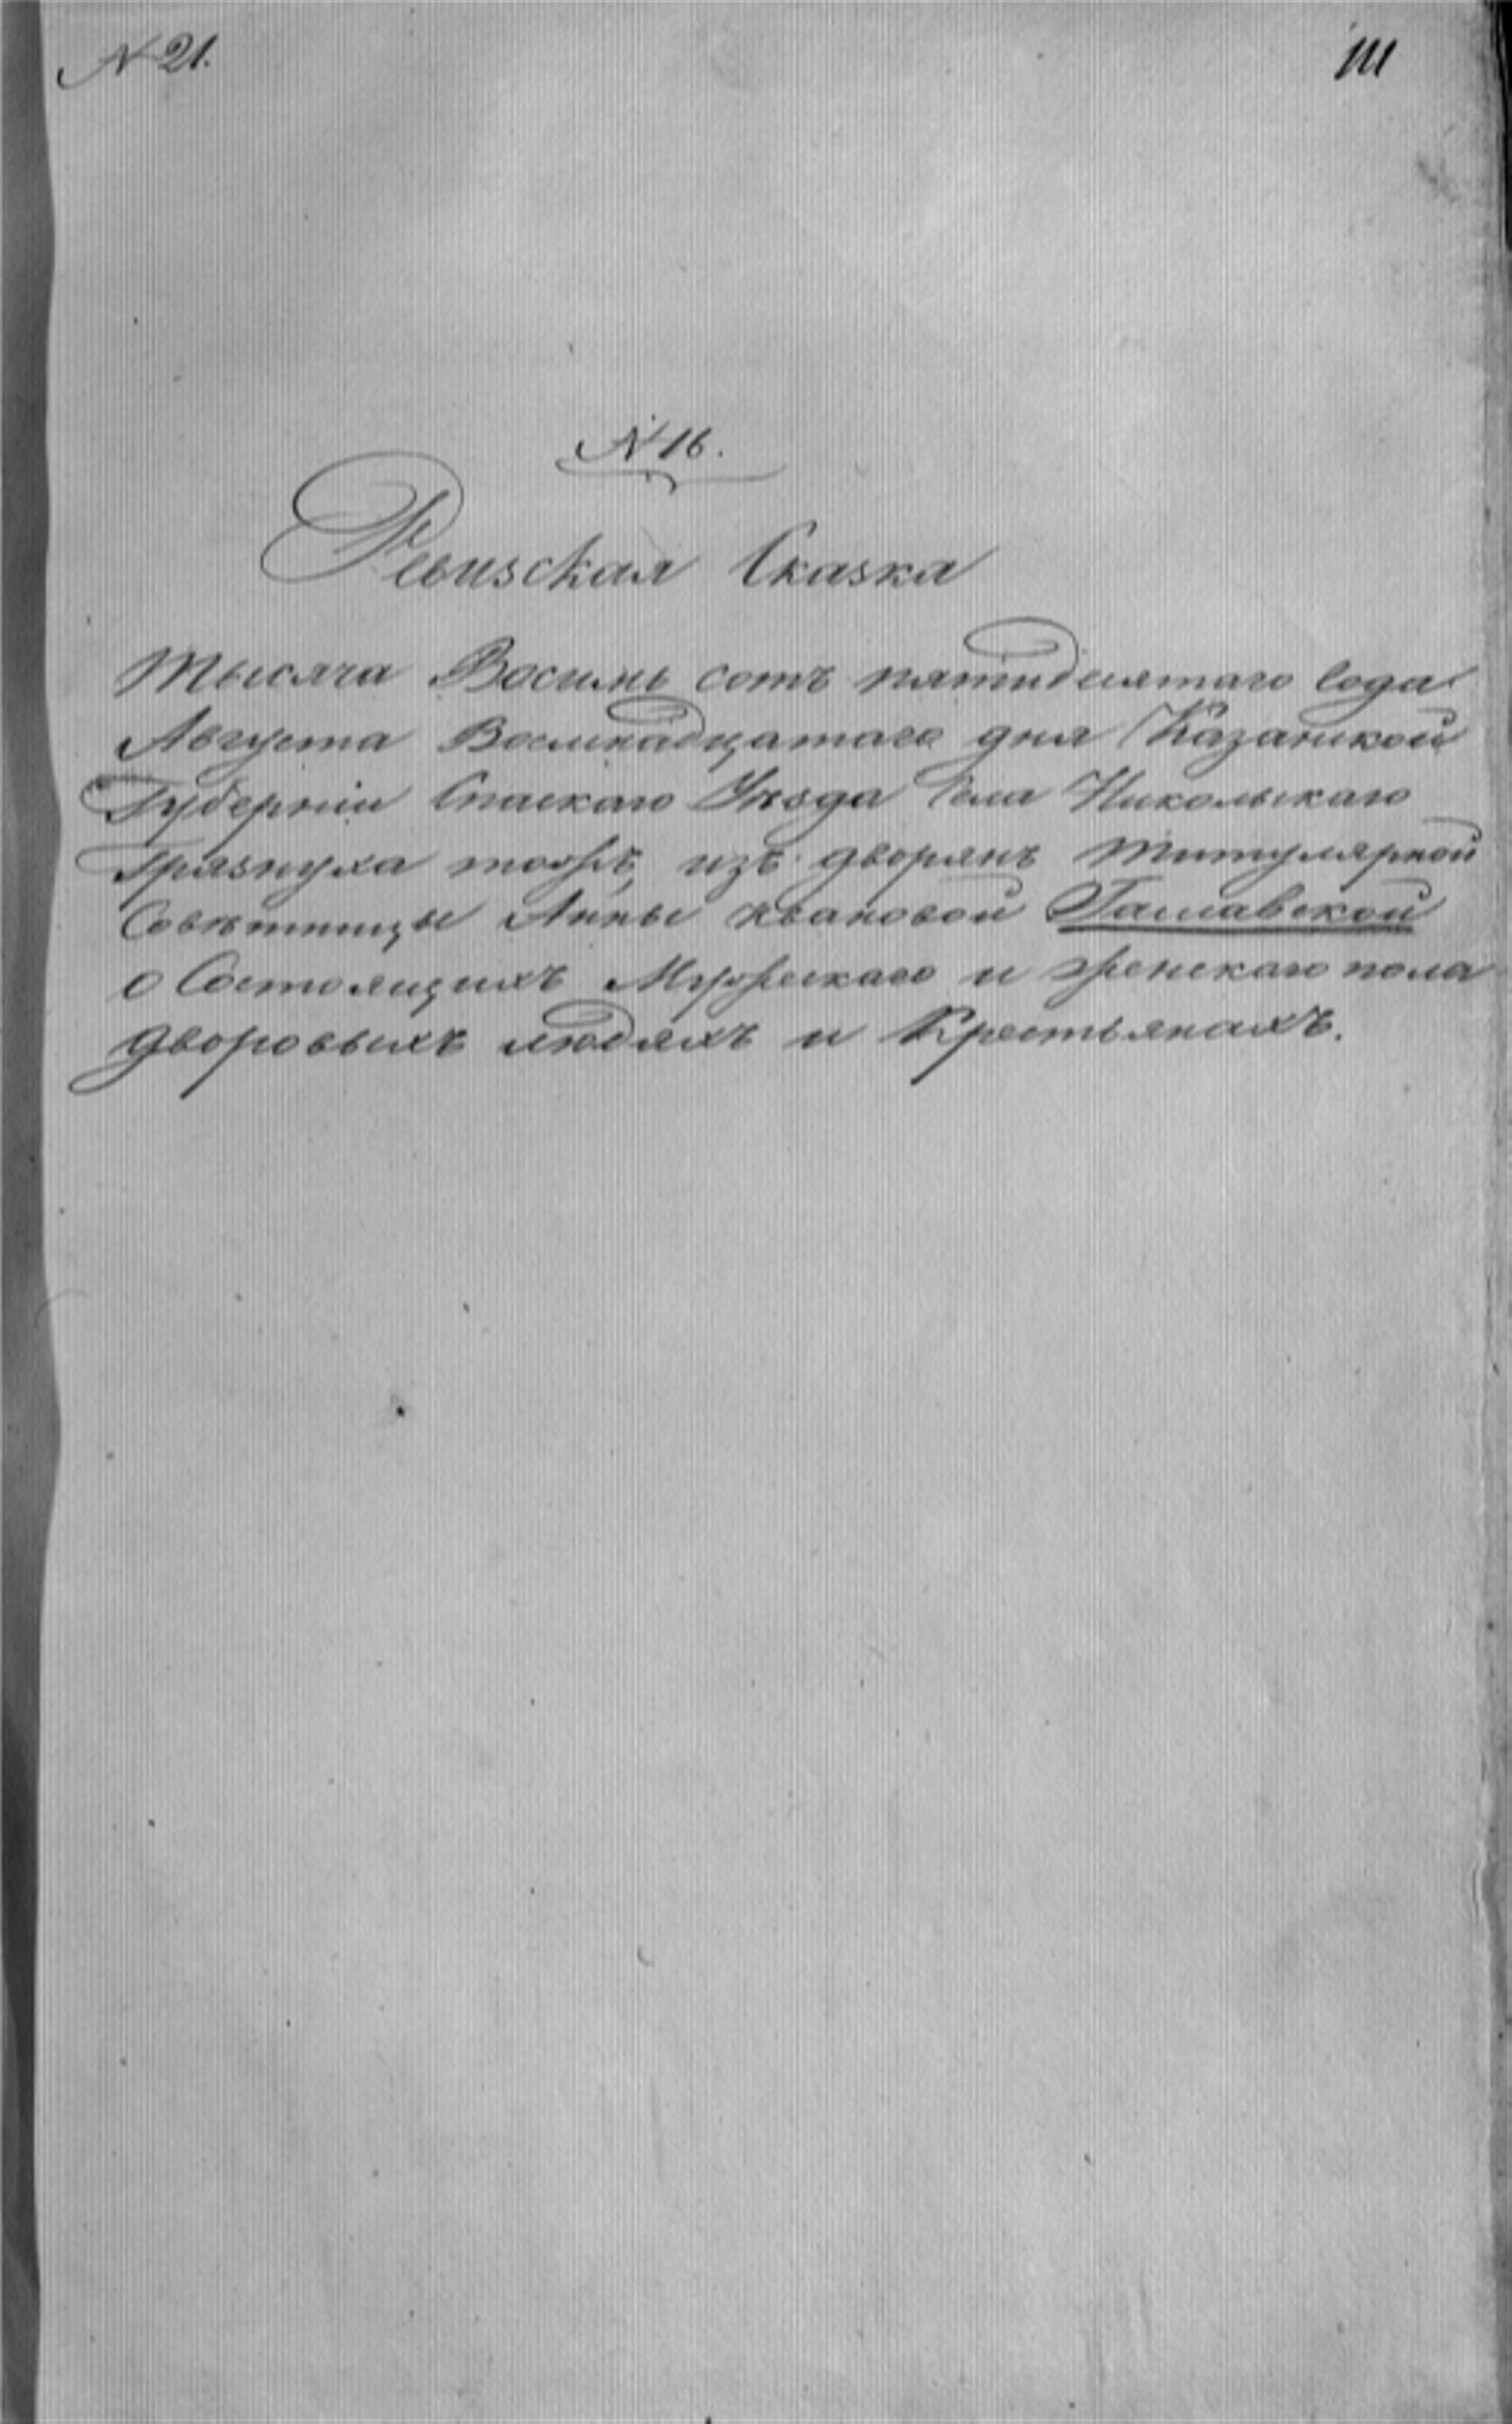 N 21.
111
N 16.
Ревизская Сказка
Тысяча Восимь сотъ пятидесятаго года
Августа Восмнадцатаго дня Казанской
Губерніи Спаскаго Уѣзда Села Никольскаго
Грязнуха тожъ, изъ дворянъ Титулярной
Совѣтницы Анны Ивановой
о Состоящихъ Мужескаго и женскаго пола
дворовыхъ людяхъ и Крестьянахъ.